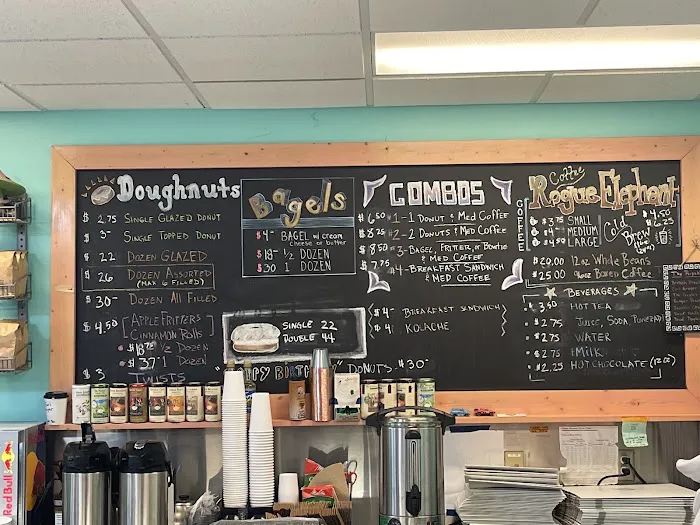 Doughnuts
$ 2.75 Single Glazed Donut
$ 3- Single Topped Donut
$ 22 Dozen Glazed
$ 26 Dozen Assorted
(Max 6 Filled)
$ 30- Dozen All Filled
$ 4.50 Apple Fritters
Cinnamon Rolls
$ 18.75 ½ Dozen
$ 37- 1 Dozen
$ 3 Twists
Bagels
$ 4- Bagel w/ cream
cheese or butter
$ 18- ½ Dozen
$ 30 1 Dozen
Single 22
Double 44
Donuts $30-
Combos
$ 6.50 #1-1 Donut & Med Coffee
$ 8.25 #2-2 Donuts & Med Coffee
$ 8.50 #3-Bagel, Fritter, or
& Med Coffee
$ 7.75 #4-Breakfast Sandwich
& Med Coffee
$ 4- Breakfast Sandwich
$ 4- Kolache
Coffee
Rogue Elephant
Coffee
$ 3.75 Small
Medium
$ 4.50 Large
Cold Brew
$ 4.50
$ 6.25
$ 20.00 12oz Whole Beans
$ 25.00 96oz Boxed Coffee
Beverages
$ 3.50 Hot Tea
$ 2.75 Juice, Soda
$ 2.75 Water
$ 2.75 Milk
$ 2.25 Hot Chocolate (12oz)
Red Bull